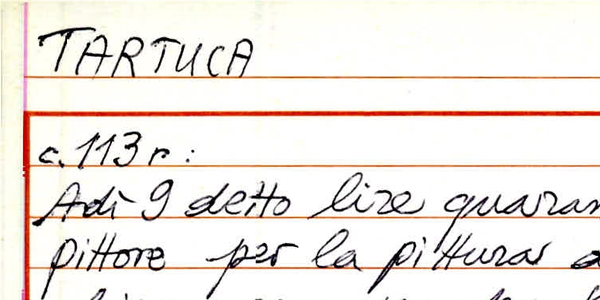 TARTUCA
c. 113 r :
Adì 9 detto lire quaran
pittore per la pittura